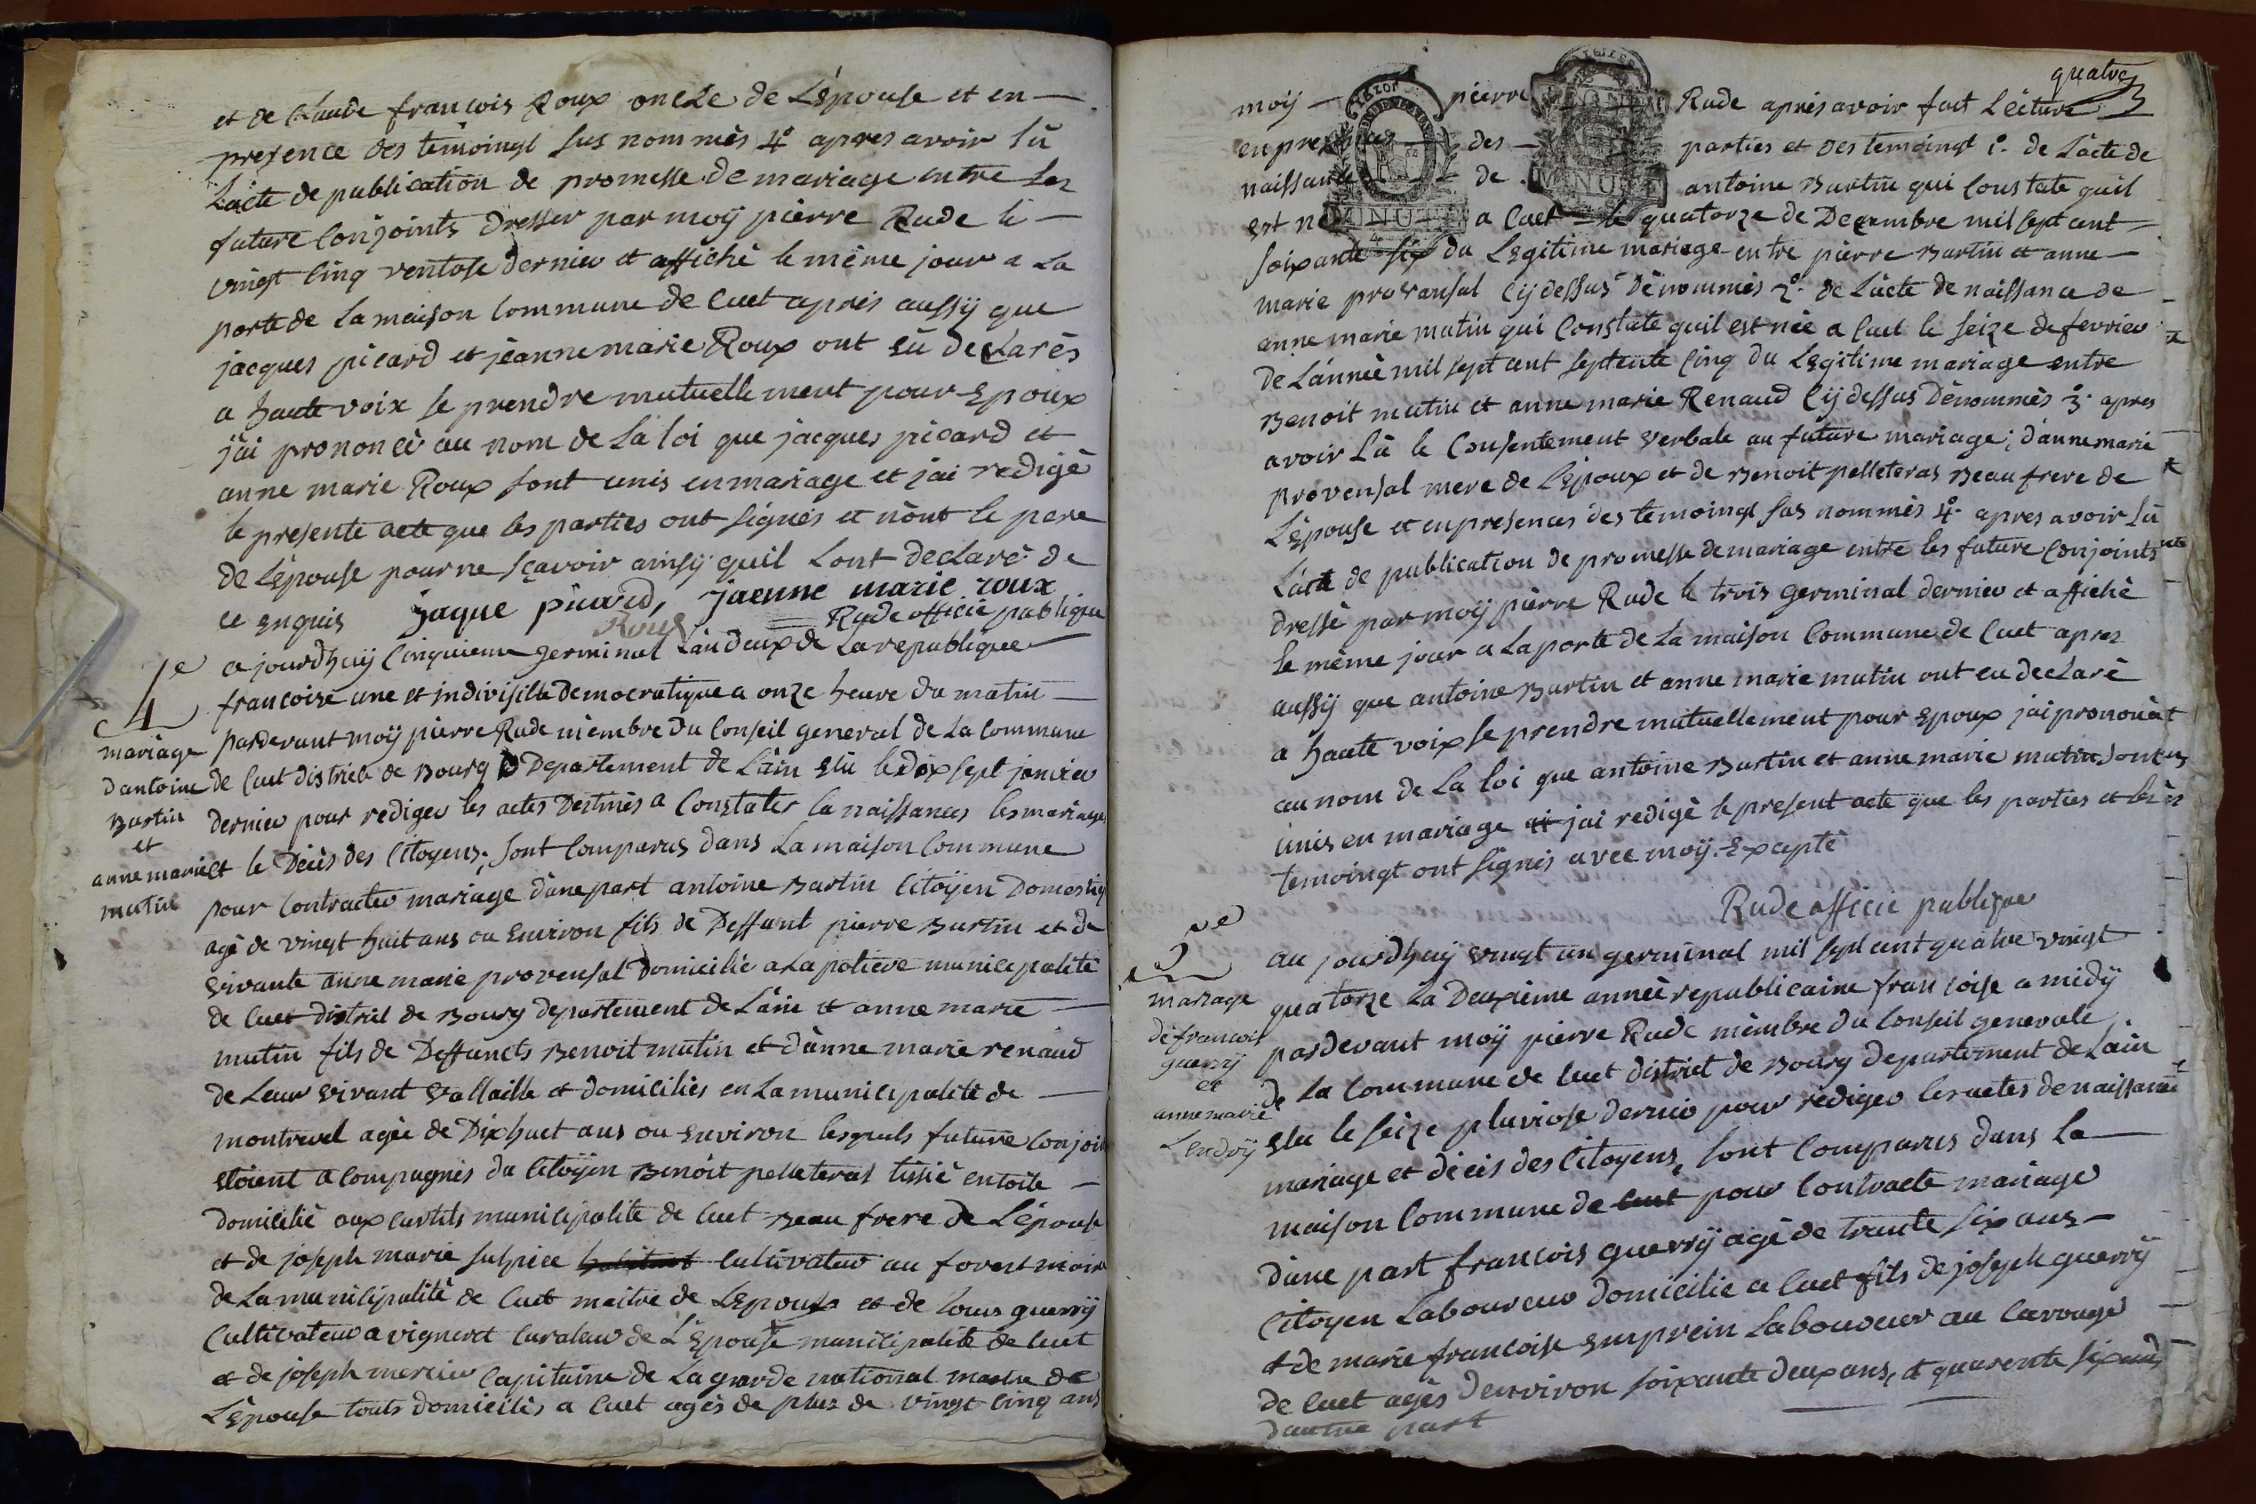 et de Claude francois Roux oncle de L'épouse et en
presence des témoingt sus nommès 4° apres avoir lù
L'acte de publication de promesse de mariage entre les
future Conjoints dresser par moÿ pierre Rude le
vingt Cinq ventose dernier et affiché le même jour a La
porte de La maison Commune de Cuet aprés aussÿ que
jacques picard et jeanne marie Roux ont éù declarès
a haute voix se prendre mutuellement pour Epoux
j'ai prononcè au nom de La loi que jacques picard et
anne marie Roux sont unis en mariage et j'ai redigè
le presente acte que les parties ont signés et n'ont le pere
de L'épouse pour ne sçavoir ainsÿ quil Lont declaré de
ce enquis jaque picard, jaenne marie roux
Roux Rude officié publique
4e
mariage
d'antoine
Burtin
et
anne marie
mutin
a jourdhuÿ Cinquieme germinal Lan deux de La republique
francoise une et indivisible democratique a onze heure du matin
pardevant moÿ pierre Rude mèmbre du Conseil general de La Commune
de Cuet districte de Bourg Departement de L'ain élù le dix sept janvier
dernier pour rediger les actes Destinès a Constater la naissances les mariages
et le Décès des Citoyens; sont Comparus dans La maison Commune
pour Contracter mariage d'une part antoine Burtin Citoÿen Domestiq
agé de vingt huit ans ou environ fils de Deffunt pierre Burtin et de
vivante anne marie provensal Domicilié a La potiere municipalité
de Cuet district de Bourg departement de L'ain et anne marie
mutin fils de Deffuncts Benoit mutin et d'anne marie renaud
de Leur vivant et domiciliés en La municipalité de
montrevel agée de Dixhuet ans ou environ lesquels future Conjoi
étoient acompagnès du Citoÿen Benoit pelleteras tissié en toile
domicilié aux Curtils municipalité de Cuet Beau frere de L'épouse
et de joseph marie sulpice habitant Cultivateur au forest maire
de La municipalité de Cuet maitre de L'epoux et de Louis guerrÿ
Cultivateur a vigneret Curateur de L'épouse municipalité de Cuet
et de joseph mercier Capitaine de La garde national maitre de
L'épouse touts domiciliés a Cuet agés de plus de vingt Cinq ans
quatre
moÿ pierre Rude aprés avoir fait Lecture
en presences des parties et des temoingt 1°. de L'acte de
naissance de antoine Burtin qui Constate quil
est né a Cuet le quatorze de Decembre mil sept cent
soixante six du Legitime mariage entre pierre Burtin et anne
marie provansal Cÿ dessus dénommés 2°. de L'acte de naissance de
anne marie mutin qui Constate quil est née a Cuet le seize de fevrier
de L'année mil sept cent septente Cinq du Legitime mariage entre
Benoit mutin et anne marie Renaud Cÿ dessus Dénommés 3°. apres
avoir Lù le Consentement verbale au future mariage; d'anne marie
provensal mere de L'époux et de Benoit pelleteras Beau frere de
L'épouse et en presences des temoingt sus nommès 4°. apres avoir Lù
L'acte de publication de promesse de mariage entre les future Conjoints
dressé par moÿ pierre Rude le trois germinal dernier et affiché
le même jour a La porte de La maison Commune de Cuet apres
aussÿ que antoine Burtin et anne marie mutin ont eu declaré
a haute voix se prendre mutuellement pour époux jai prononcèt
au nom de La loi que antoine Burtin et anne marie mutin sont
unis en mariage et jai redigé le present acte que les parties et les
temoingt ont signés avec moÿ. Excepté
Rude officié publique
5ve
mariage
de francois
guerrÿ
et
anne marie
Lendrÿ
au jourdhuÿ vingt un germinal mil sept cent quatre vingt
quatorze La Deuxième année republicaine francoise a midÿ
pardevant moÿ pierre Rude mèmbre du Conseil generale
de La Commune de Cuet district de Bourg departement de L'ain
élu le seize pluviose dernier pour rediger les actes de naissance
mariage et décés des Citoyens, sont Comparus dans La
maison Commune de Cuet pour Contracte mariage
d'une part francois guerrÿ agé de trante six ans
Citoyen Laboureur domicilié a Cuet fils de joseph guerrÿ
et de marie francoise emprein Laboureur au Carouge
de Cuet agés d'environ soixante deux ans, et quarente six ans
d'autre part